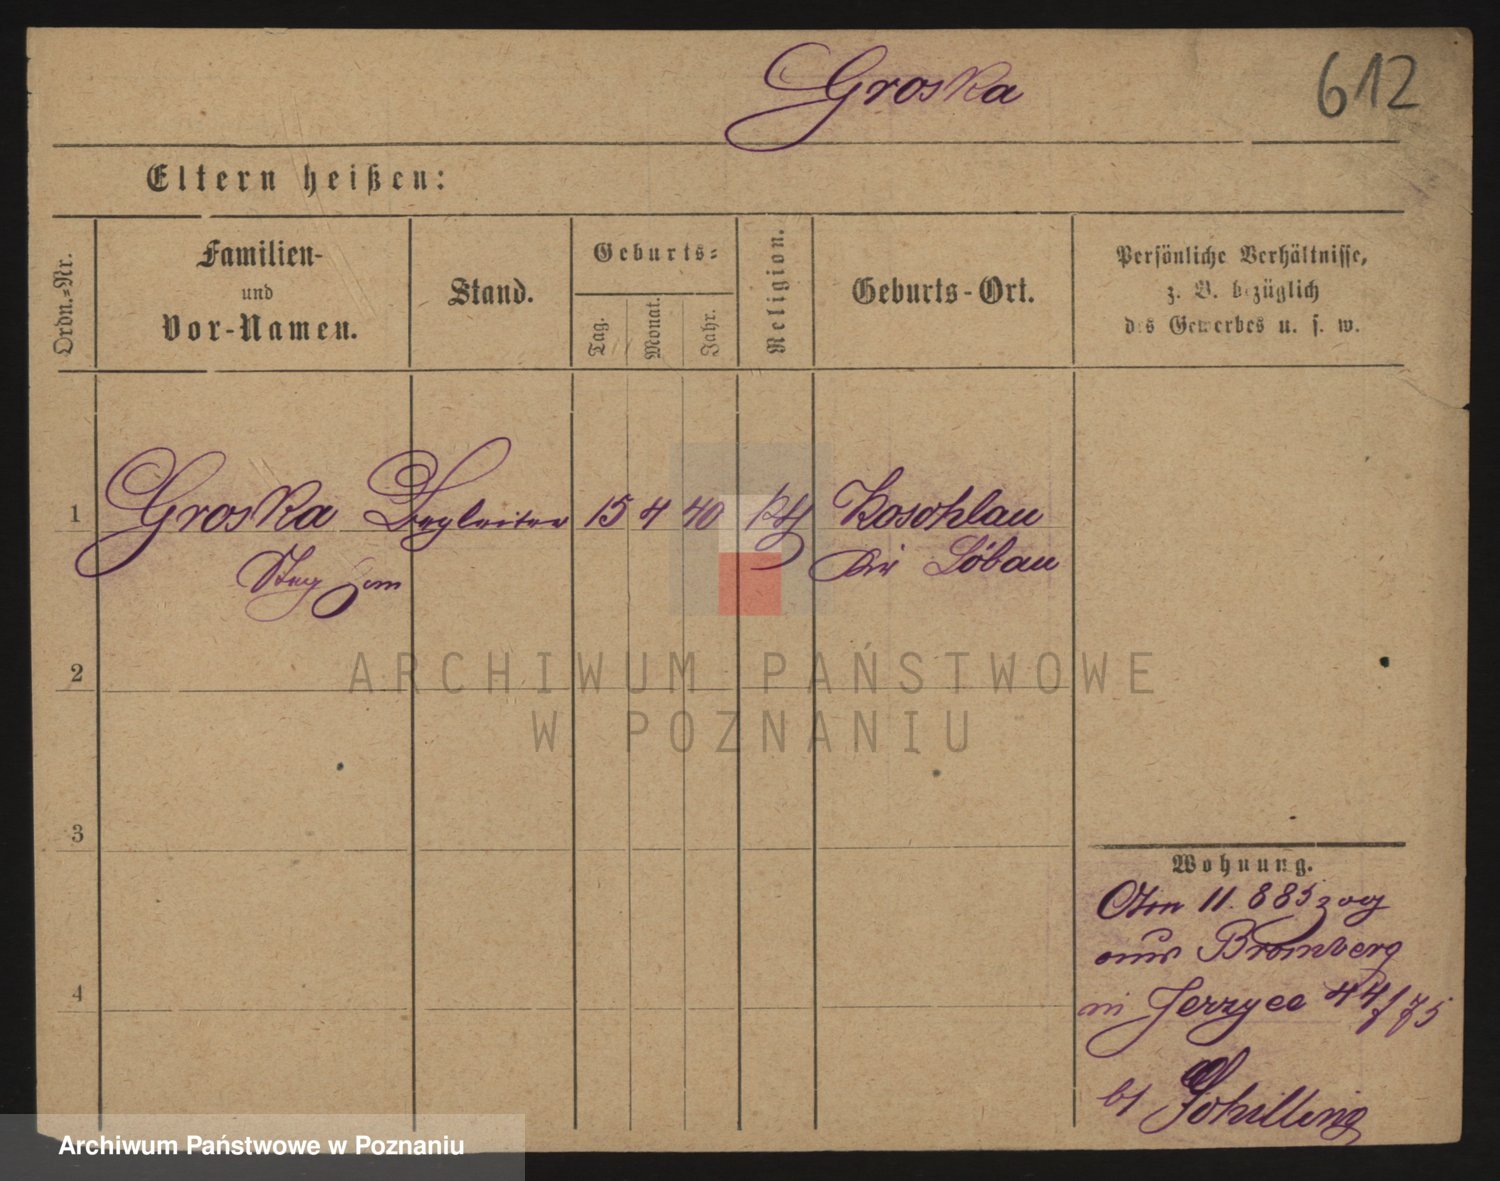 Groska
612
Eltern heißen:
Ordn.-Nr.
Familien-
und
Vor-Namen.
Stand.
Geburts-
Tag.
Monat.
Jahr.
Religion.
Geburts-Ort.
Persönliche Verhältnisse,
z. B. bezüglich
des Gewerbes u. s. w.
1 Groska Begleiter 15 4 40 kth Koschlau
Kr Löbau
2
ARCHIWUM PAŃSTWOWE
W POZNANIU
3
4
Wohnung.
11. 885 zog
aus Bromberg
in Jerzyce 44/75
bei Schilling
Archiwum Państwowe w Poznaniu